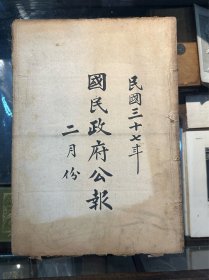 民國三十七年
國民政府公報
二月份